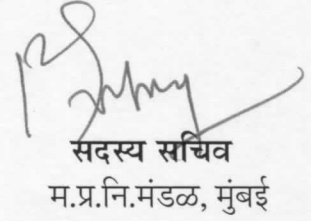 सदस्य सचिव
म.प्र.नि.मंडळ, मुंबई